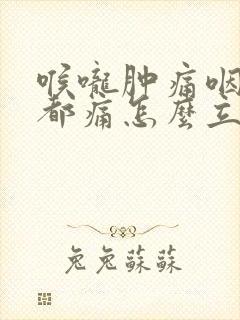 喉嚨肿痛咽
都痛怎麼立
兔兔蘇蘇